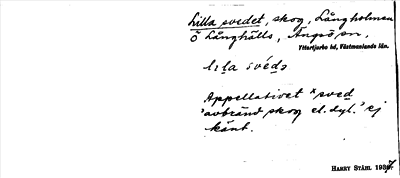 Lilla svedet, skog, Långholmen
Ö Långhälls, Ängsö sn,
Yttertjurbo hd, Västmanlands län.
lı̣la svédə
Appellativet *sved
'avbränd skog el. dyl.' ej
känt.
HARRY STÅHL 1937.